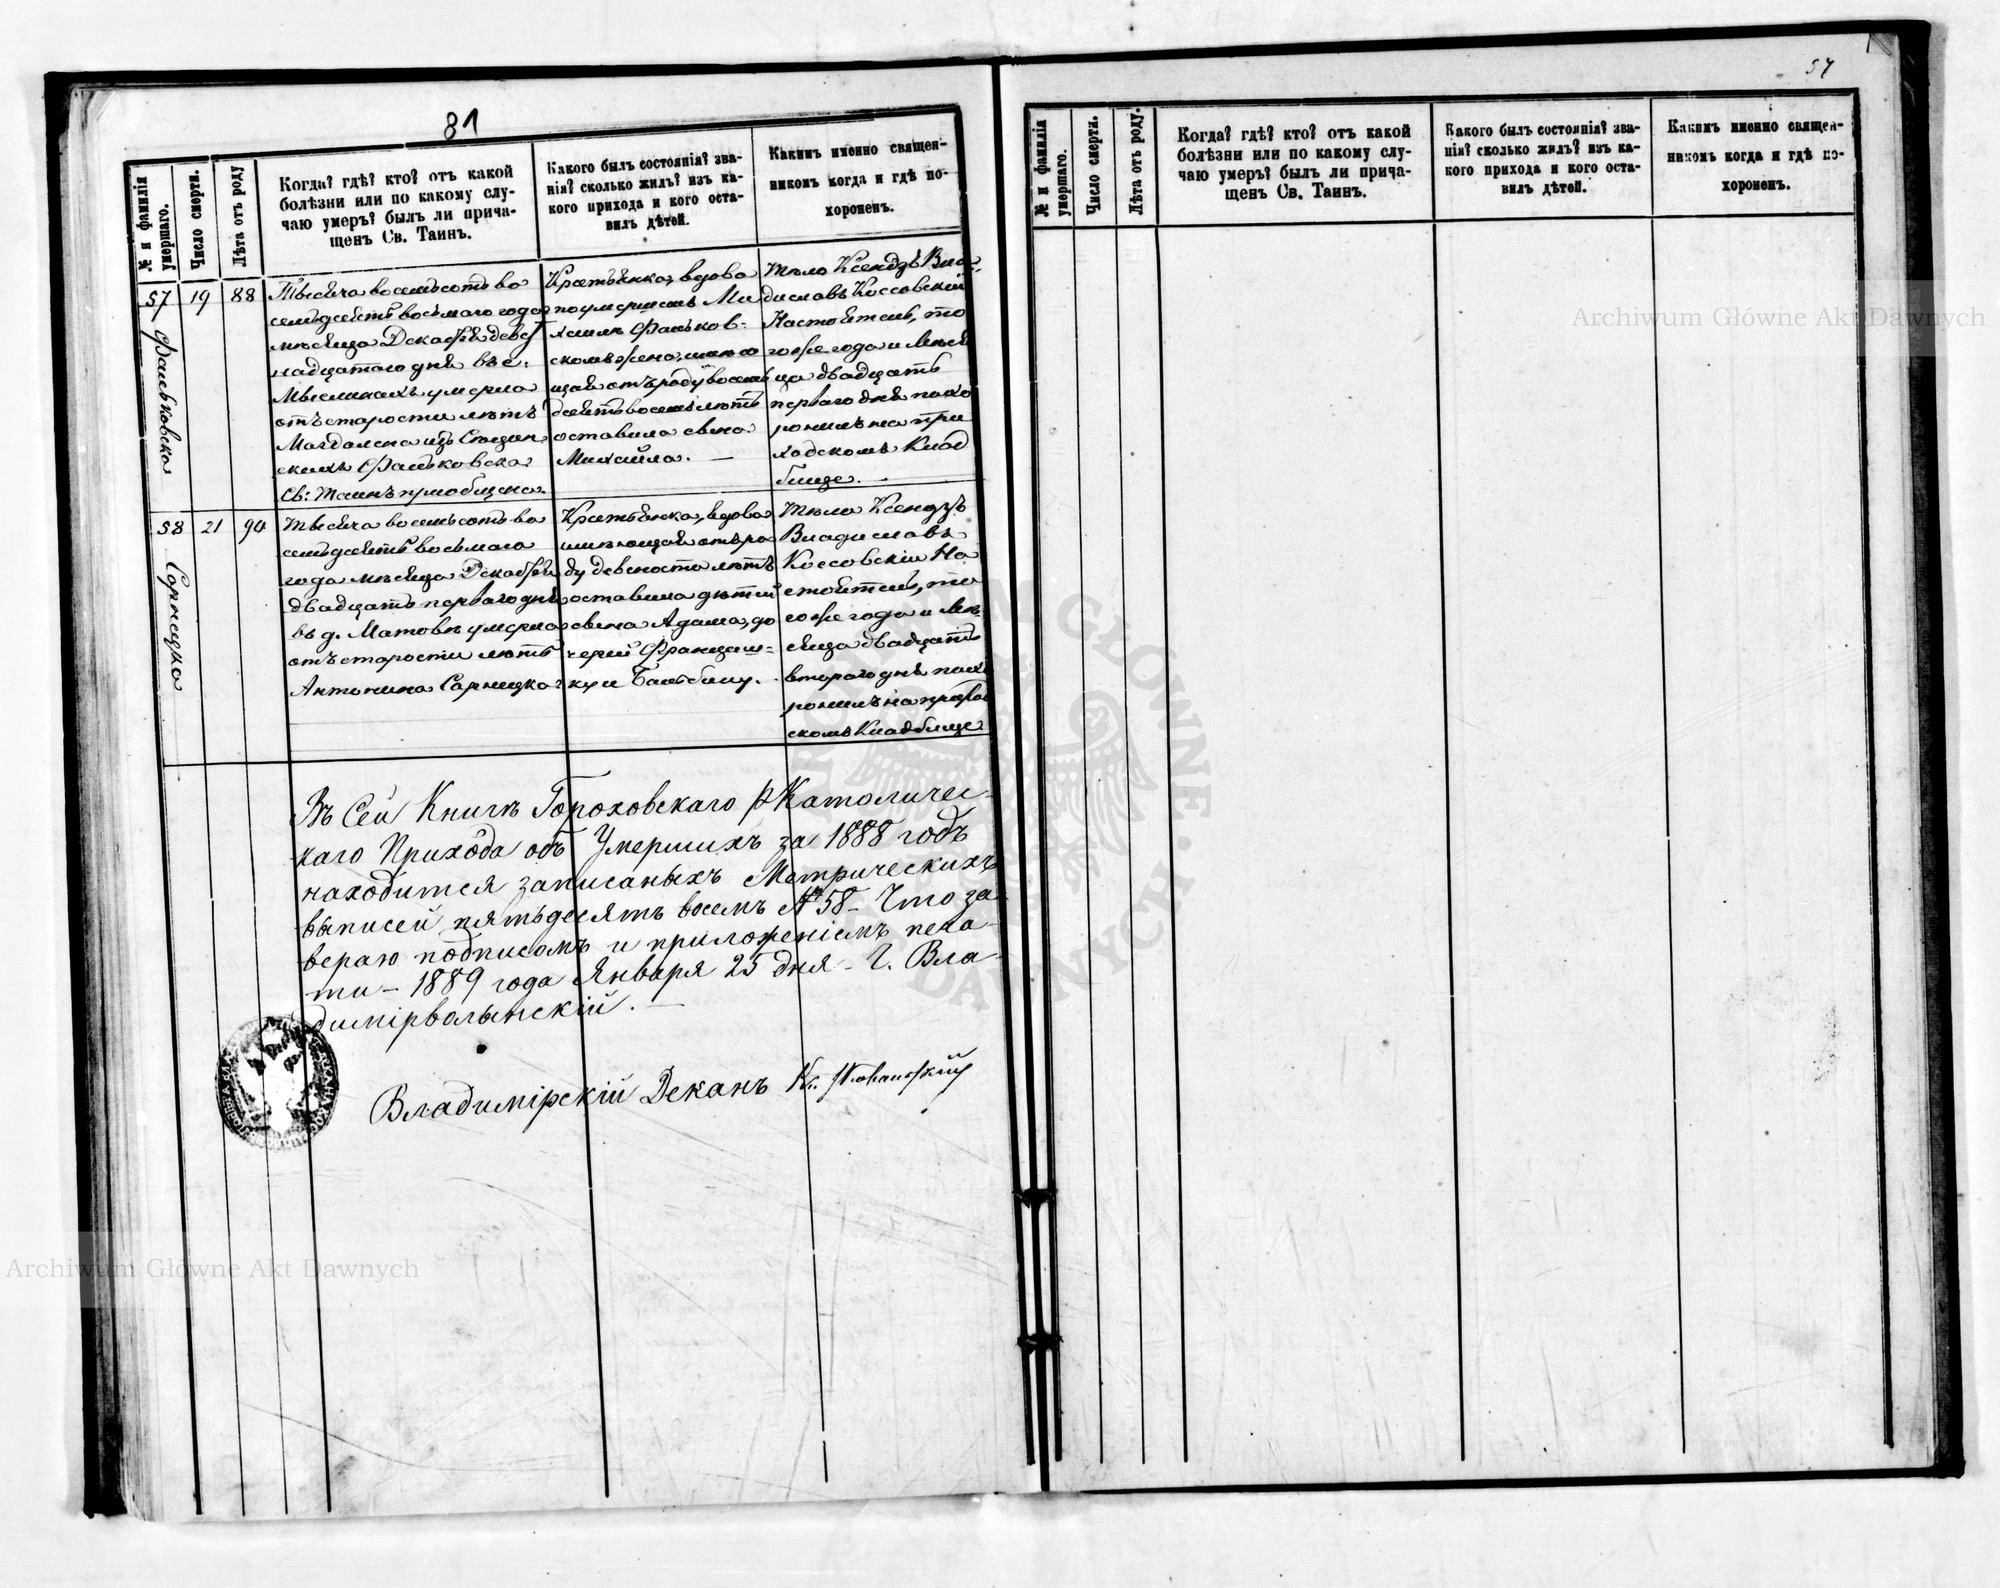 81
№ и фамилія умершаго.
Число смерти.
Лѣта отъ роду
Когда? гдѣ? кто? отъ какой
болѣзни или по какому слу-
чаю умеръ? былъ ли прича-
щенъ Св. Таинъ.
Какого былъ состоянія? зва-
нія? сколько жилъ? изъ ка-
кого прихода и кого оста-
вилъ дѣтей.
Какимъ именно священ-
никомъ когда и гдѣ по-
хороненъ.
57
Фальковска
19
88
Тысяча восемьсотъ во
семьдсятъ восьмаго года
мѣсяца Декабря девят
надцатаго дня въ с.
умерла
отъ старости лѣтъ
Магдалена изъ
скихъ Фальковска
Св: Таинъ приобщена.
Крестьянка, вдова
по умершемъ Ми
хаилѣ Фальков-
скомъ жена, имѣю
щая отъ роду восемь
десятъ восемь лѣтъ
оставила сына
Михаила. —
Тѣло Ксендзъ Вла-
диславъ Коссовскій
Настоятель, то
гоже года и мѣся
ца двадцать
перваго дня похо
ронилъ на при
ходскомъ Клад
бище. -
58
Сарнецка
21
90
Тысяча восемьсотъ во
семьдсятъ восьмаго
года мѣсяца Декабря
двадцать перваго дня
въ д. Матовѣ умерла
отъ старости лѣтъ
Антонина Сарнецка
Крестьянка, вдова
имѣющая отъ ро
ду девяносто лѣтъ
оставила дѣтей
сына Адама, до
черей Францишь-
ку и Бальбину. -
Тѣло Ксендзъ
Владиславъ
Коссовскій На
стоятель, то
гоже года и мѣ-
сяца двадцать
втораго дня похо
ронилъ на приход
скомъ Кладбище
Въ Сей Книгѣ Гороховскаго Р Католичес-
каго Прихода объ Умершихъ за 1888 годъ
находится записаныхъ Метрическихъ
выписей пятьдесятъ восемь № 58 - Что за-
веряю подписомъ и приложеніемъ печа-
ти - 1889 года Января 25 дня - Г. Вла-
димірволынскій. —
Владимірскій Деканъ Кс.
57
№ и фамилія умершаго.
Число смерти.
Лѣта отъ роду.
Когда? гдѣ? кто? отъ какой
болѣзни или по какому слу-
чаю умеръ? былъ ли прича-
щенъ Св. Таинъ.
Какого былъ состоянія? зва-
нія? сколько жилъ? изъ ка-
кого прихода и кого оста-
вилъ дѣтей.
Какимъ именно священ-
никомъ когда и гдѣ по-
хороненъ.
Archiwum Główne Akt Dawnych
Archiwum Główne Akt Dawnych